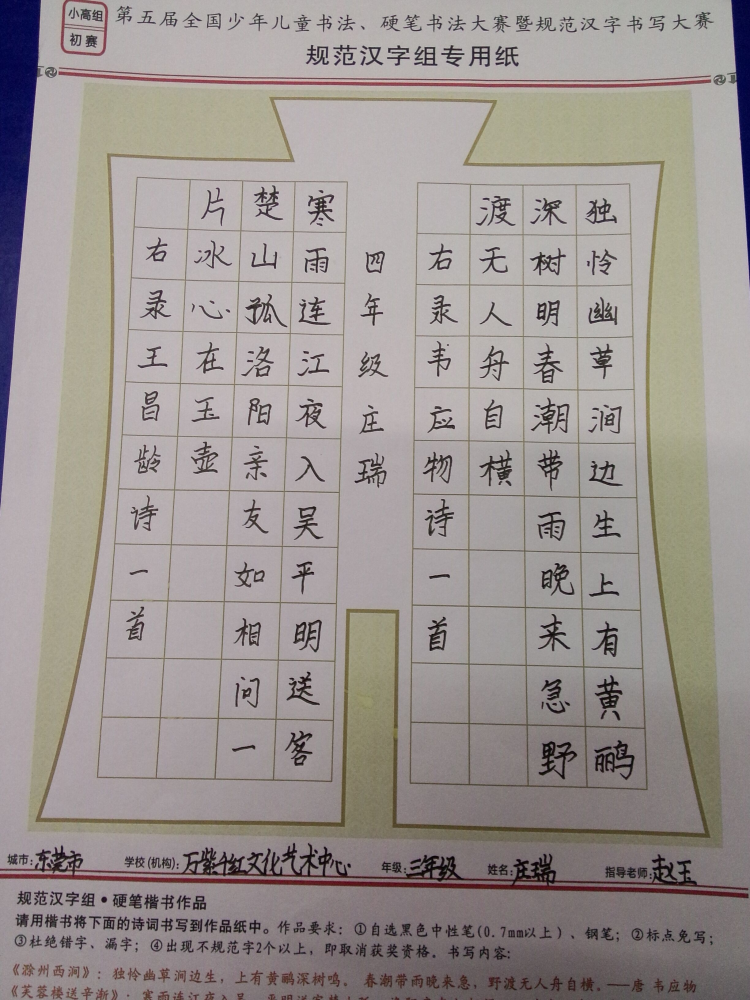 小高组
初赛
第五届全国少年儿童书法、硬笔书法大赛暨规范汉字书写大赛
规范汉字组专用纸
独怜幽草涧边生上有黄鹂
深树明春潮带雨晚来急野
渡无人舟自横
右录韦应物诗一首
四年级庄瑞
寒雨连江夜入吴平明送客
楚山孤洛阳亲友如相问一
片冰心在玉壶
右录王昌龄诗一首
城市:东莞市 学校(机构):万紫千红文化艺术中心 年级:三年级 姓名:庄瑞 指导老师:赵玉
规范汉字组•硬笔楷书作品
请用楷书将下面的诗词书写到作品纸中。作品要求：①自选黑色中性笔(0.7mm以上)、钢笔；②标点免写；
③杜绝错字、漏字；④出现不规范字2个以上，即取消获奖资格。书写内容：
《滁州西涧》：独怜幽草涧边生，上有黄鹂深树鸣。春潮带雨晚来急，野渡无人舟自横。——唐 韦应物
《芙蓉楼送辛渐》：寒雨连江夜入吴